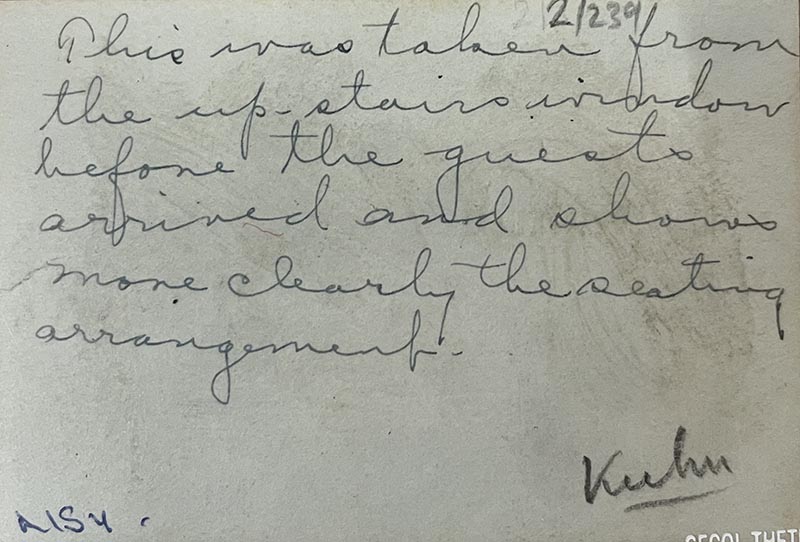 2/239
This was taken from
the up-stairs window
before the guests
arrived and shows
more clearly the seating
arrangement.
Kuhn